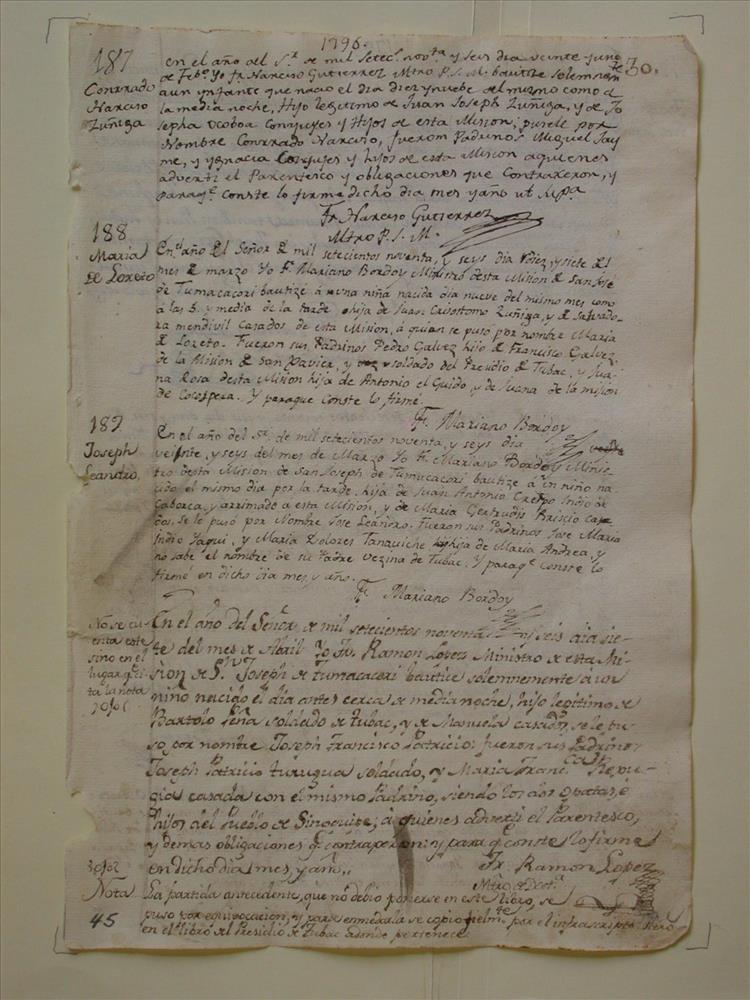 1796.
30.
187
Conrrado
Narciso
Zuñiga
en el año del S.r de mil setec.s nov.ta y seis dia veinte
de Feb.o Yo fr. Narciso Gutierrez Mtro P. S. M. bautize solemnem.te
a un ynfante que nacio el dia diez y nuebe del mismo como a
la media noche, Hijo legitimo de Juan Joseph Zuñiga, y de Jo
sepha Ocoboa Conjuges y Hijos de esta Mision; pusele por
Nombre Conrrado Narciso, fuerom Padrinos Miguel Jay
me, y ygnacia Conjuges y hijos de esta Mision a quienes
adverti el Parentesco y obligaciones que Contraxeron, y
paraq.e Conste lo firme dicho dia mes y año ut sup.a
Fr. Narciso Gutierrez
Mtro P. S. M.
188
Maria
de Loreto
En el año del Señor de mil setecientos noventa, y seys dia diez, y siete del
mes de marzo Yo Fr. Mariano Bordoy Ministro desta Mision de San José
de Tumacacori bautizé á una niña nacida dia nueve del mismo mes como
á las 5. y media de la tarde hija de Juan Crisostomo Zuñiga, y de Salvado-
ra mendivil Casados de esta Mision, á quian se puso por nombre Maria
de Loreto. Fueron sus Padrinos Pedro Galvez hijo de Francisco Galvez
de la Mision de San Xavier, y soldado del Presidio de Tubac, y Jua-
na Rosa desta Mision hija de Antonio el Guido, y de Juana de la mision
de Cocospera. Y paraque conste lo firmé.
Fr. Mariano Bordoy
189.
Joseph
Leandro
En el año del S.r de mil setecientos noventa, y seys dia
veinte, y seys del mes de Marzo Yo Fr. Mariano Bordoy Minis-
tro desta Mision de San Joseph de Tumacacori bautize á un niño na-
cido el mismo dia por la tarde, hijo de Juan Antonio Crespo Indio de
Caborca, y arrimado a esta Mision, y de Maria Gertrudis Briscio casa-
dos, se le puso por Nombre Jose Leandro. Fueron sus Padrinos Jose Maria
Indio Yaqui, y Maria Dolores Tanquiche hija de Maria Andrea, y
no sabe el nombre de su Padre vezina de Tubac. Y paraq.e conste lo
firmé en dicho dia mes, y año.
Fr. Mariano Bordoy
No se cu
enta este
sino en el
lugar q.e ci
ta la nota
En el año del Señor de mil setecientos noventa y seis dia sie-
te del mes de Abril Yo Fr. Ramon Lopez Ministro de esta Mi-
sion de S.n Joseph de Tumacacori bautice solemnemente a un
niño nacido el dia antes cerca de media noche, hijo legitimo de
Bartolo Peña soldado de Tubac, y de Manuela casados, se le pu-
so por nombre Joseph Francisco Patricio: fueron sus Padrinos
Joseph Patricio turugua soldado, y Maria Fran.ca Repu-
gia casada con el mismo Padrino, siendo los dos opatas, è
hijos del Pueblo de Sinoquipe; a quienes adverti el Parentesco,
y demas obligaciones q.e contraxeron: y para q.e conste lo firme
en dicho dia, mes, y año,,
Fr. Ramon Lopez
Nota
La partida antecedente, que no debio ponerse en este libro, se
puso por equivocacion, y para enmendarla se copio fielm.te por el infrascripto Mtro
en el libro del Presidio de Tubac adonde pertenece.
45